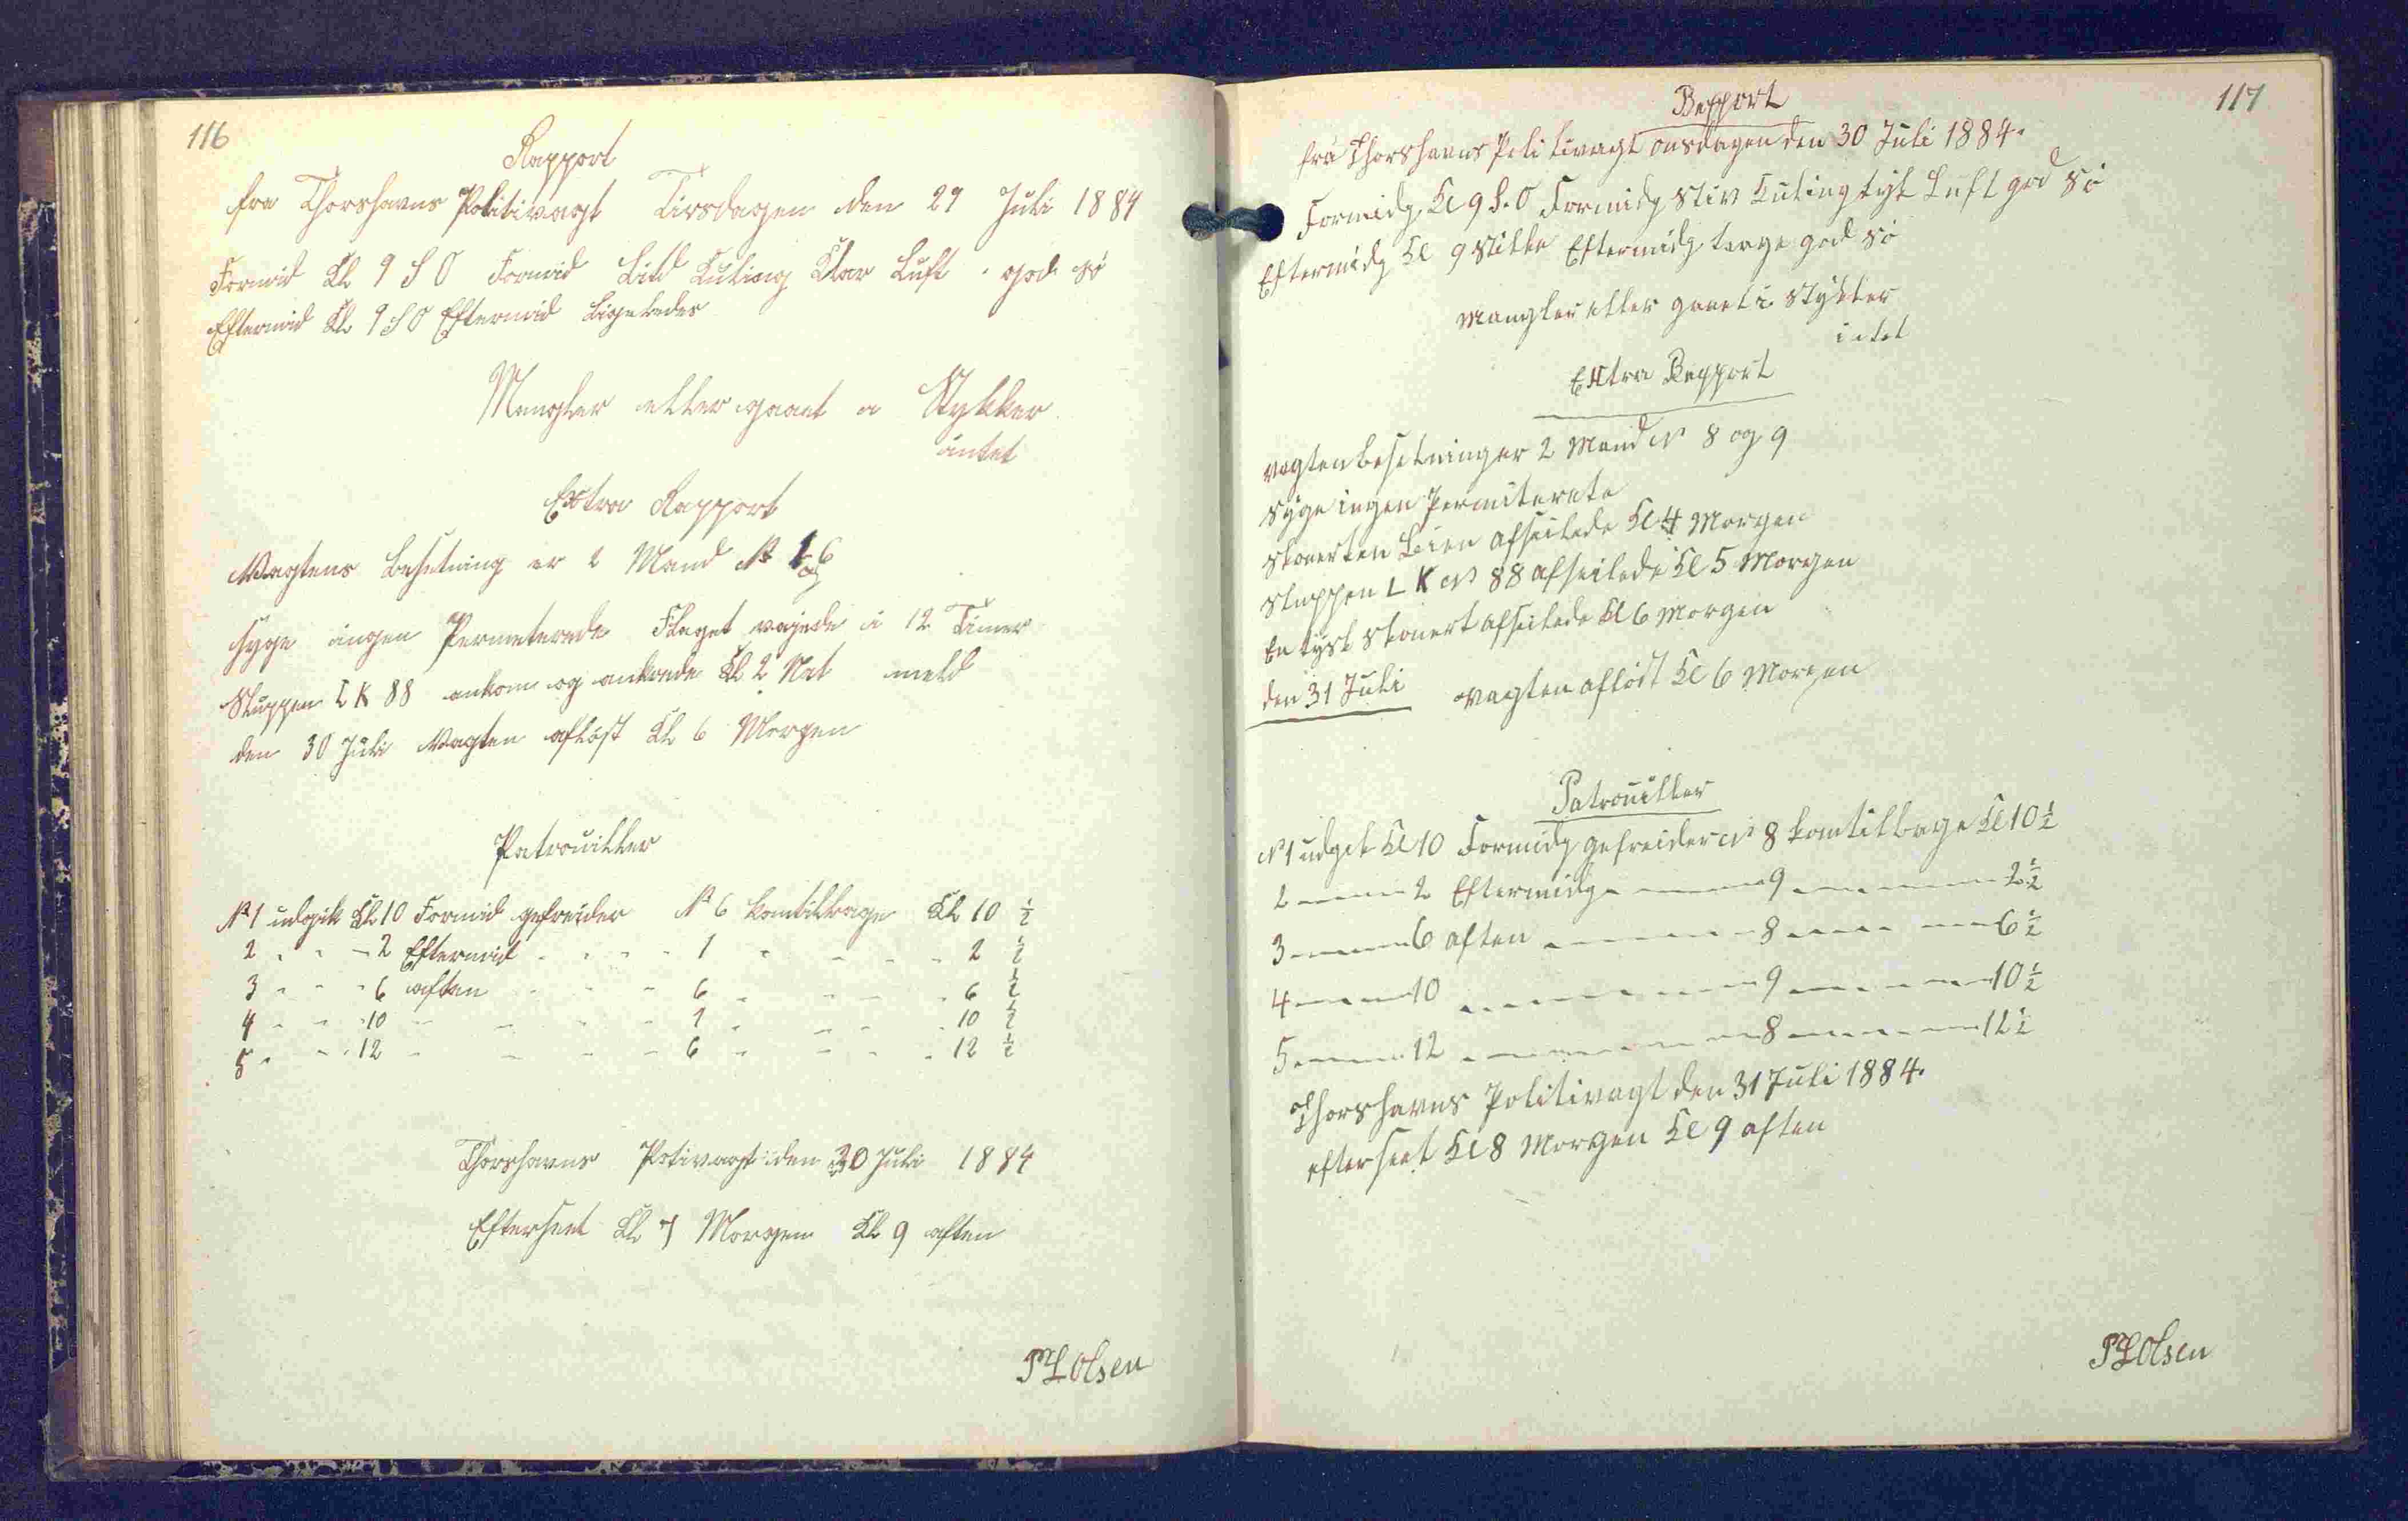 116
Rapport
fra Thorshavns Politivagt Tirsdagen den 29 Juli 1884
Formid Kl 9 S O Formid Lid Kuling Klar Luft. god Sø
Eftermid Kl 9 S O Eftermid ligeledes
Mangler eller gaaet i Stykker
intet
Extra Rapport
Vagtens Besetning er 2 Mand № 1 og 6
Syge ingen Permeterede Flaget vajede i 12 Timer
Sluppen L K 88 ankom og ankrede Kl 2 Nat meld
den 30 Juli Vagten afløst Kl 6 Morgen
Patrouiller
№ 1 udgik Kl 10 Formid gefreider № 6 komtilbage Kl 10 ½
2 - - - 2 Eftermid - - - - 1 - - - - 2 ½
3 - - - 6 aften - - - 6 - - - - 6 ½
4 - - - 10 - - - - 1 - - - - 10 ½
5 - - - 12 - - - - 6 - - - - 12 ½
Thorshavns Potivagt den 30 Juli 1884
Efterseet Kl 7 Morgen Kl 9 aften
PLOlsen
117
Repport
fra Thorshavns Politivagt onsdagen den 30 Juli 1884.
Formidg Kl 9 S. O Formidg Stiv Kuling tyk Luft god Sø
Eftermidg Kl 9 Stille Eftermidg god Sø
Mangler eller gaaet i Stykker
intet
Extra Repport
vagten besetninger 2 Mand № 8 og 9
Syge ingen Permiterete
Skonerten afseilede Kl 4 Morgen
Sluppen L K № 88 afseilede Kl 5 Morgen
En tysk Skonert afseilede Kl 6 Morgen
den 31 Juli vagten afløst Kl 6 Morgen
Patrouiller
№ 1 udgik Kl 10 Formidg gefreider № 8 komtilbage Kl 10 ½
2 - - - 2 Eftermidg - - - 9 - - - 2 ½
3 - - - 6 aften - - - 8 - - - 6 ½
4 - - - 10 - - - 9 - - - 10 ½
5 - - - 12 - - - 8 - - - 12 ½
Thorshavns Politivagt den 31 Juli 1884.
efterseet Kl 8 Morgen Kl 9 aften
PLOlsen